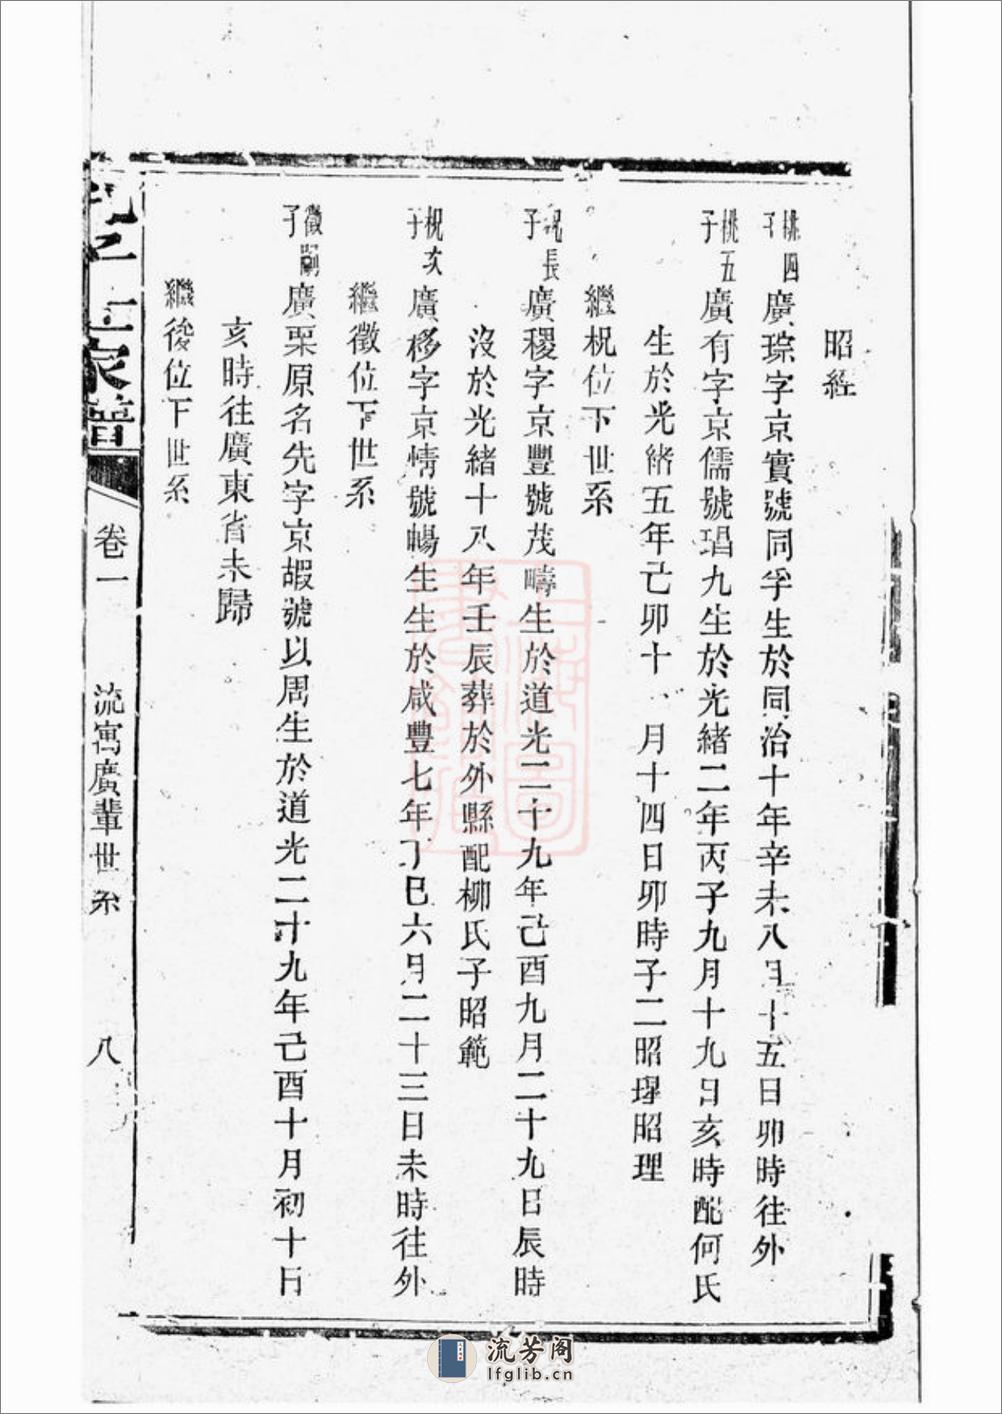 昭經
桃四子廣琮字京實號同孚生於同治十年辛未八月十五日卯時往外
桃五子廣有字京儒號瑁九生於光緒二年丙子九月十九日亥時配何氏
生於光緒五年己卯十 月十四日卯時子二昭瑆昭理
繼柷位下世系
柷長子廣稷字京豐號茂疇生於道光二十九年己酉九月二十九日辰時
沒於光緒十八年壬辰葬於外縣配柳氏子昭範
柷次子廣移字京情號暢生生於咸豐七年丁巳六月二十三日未時往外
繼徵位下世系
徵嗣子廣栗原名先字京嘏號以周生於道光二十九年己酉十月初十日
亥時往廣東省未歸
繼後位下世系
孔子世家譜
卷一
流寓廣輩世系
八
流芳阁
lfglib.cn